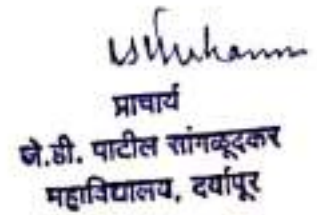 प्राचार्य
जे.डी. पाटील सांगळूदकर
महाविद्यालय, दर्यापूर